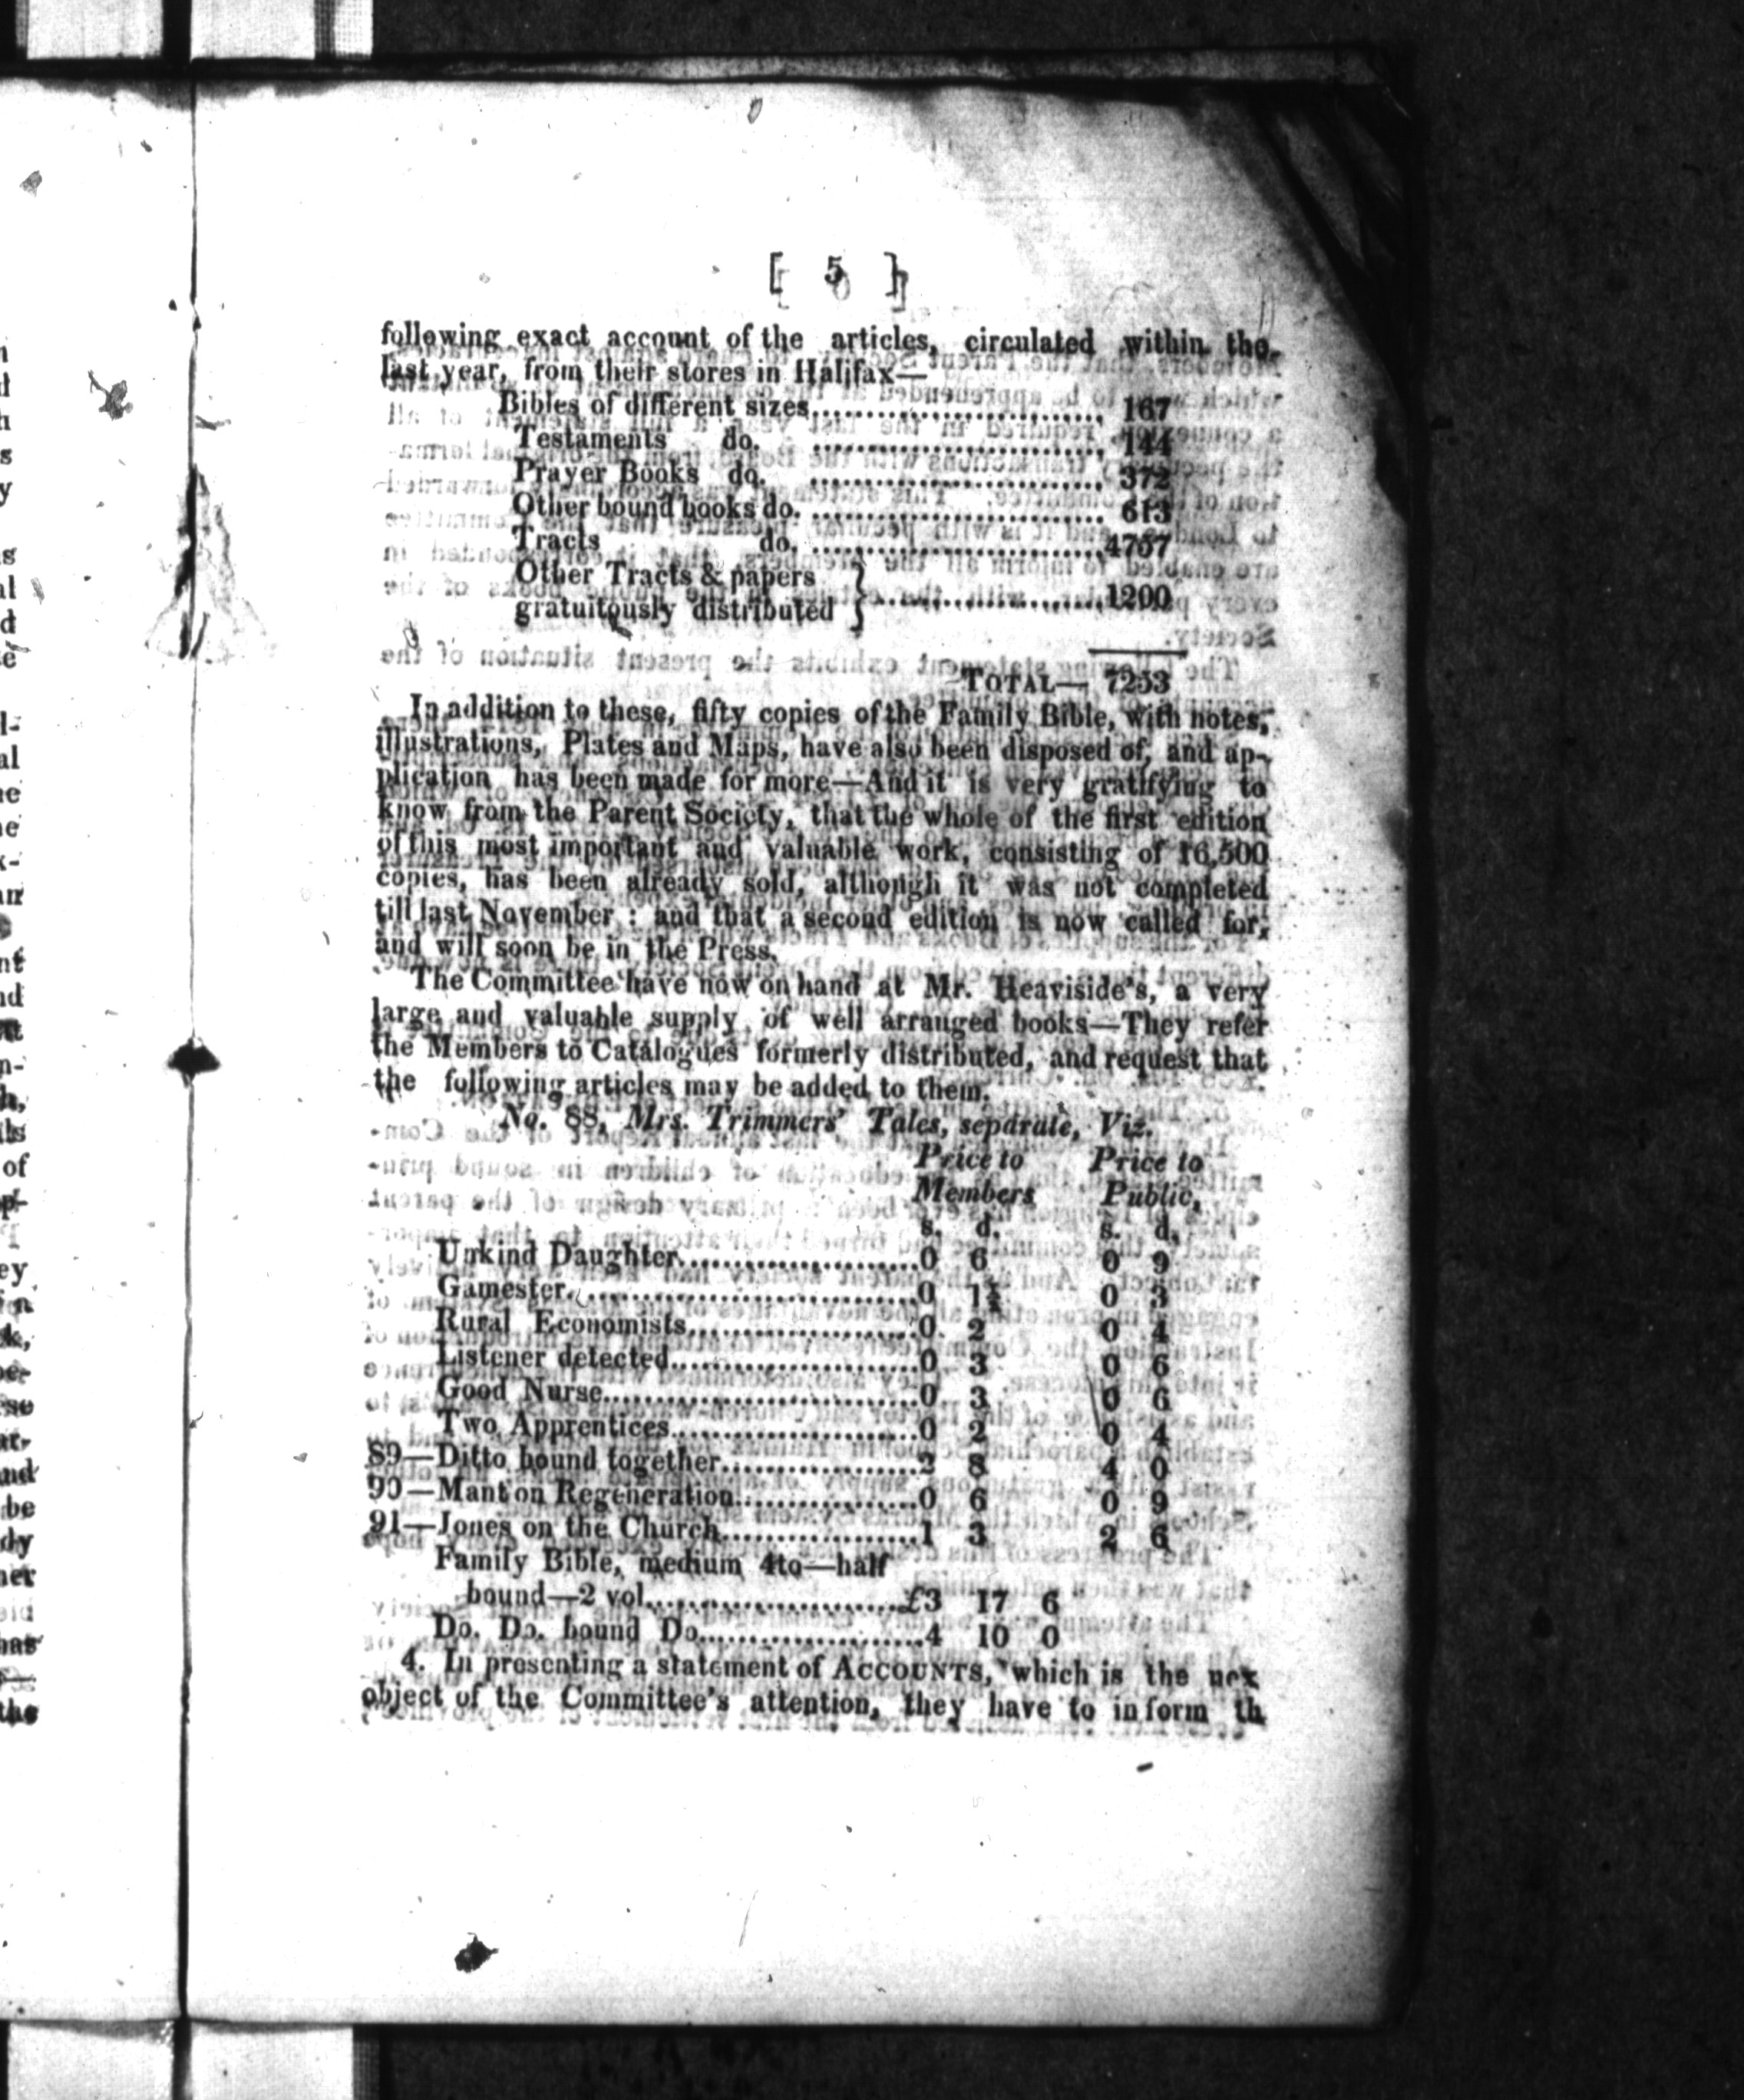 [ 5 ]
following exact account of the articles, circulated within the
last year, from their stores in Halifax—
Bibles of different sizes............................ 167
Testaments do. ............................ 144
Prayer Books do. ............................ 372
Other bound books do. ............................ 613
Tracts do. ............................4757
Other Tracts & papers
gratuitously distributed } ......................1200
TOTAL— 7253
In addition to these, fifty copies of the Family Bible, with notes,
illustrations, Plates and Maps, have also been disposed of, and ap-
plication has been made for more—And it is very gratifying to
know from the Parent Society, that the whole of the first edition
of this most important and valuable work, consisting of 16,500
copies, has been already sold, although it was not completed
till last November : and that a second edition is now called for,
and will soon be in the Press.
The Committee have now on hand at Mr. Heaviside's, a very
large and valuable supply of well arranged books—They refer
the Members to Catalogues formerly distributed, and request that
the following articles may be added to them.
No. 88, Mrs. Trimmers' Tales, separate, Viz.
Price to Price to
Members Public,
s. d. s. d.
Unkind Daughter.......................0 6 0 9
Gamester.................................0 1½ 0 3
Rural Economists.......................0 2 0 4
Listener detected........................0 3 0 6
Good Nurse..............................0 3 0 6
Two Apprentices........................0 2 0 4
89—Ditto bound together...................2 8 4 0
90—Mant on Regeneration..................0 6 0 9
91—Jones on the Church...................1 3 2 6
Family Bible, medium 4to—half
bound—2 vol..........................£3 17 6
Do. Do. bound Do.......................4 10 0
4. In presenting a statement of ACCOUNTS, which is the nex
object of the Committee's attention, they have to inform th